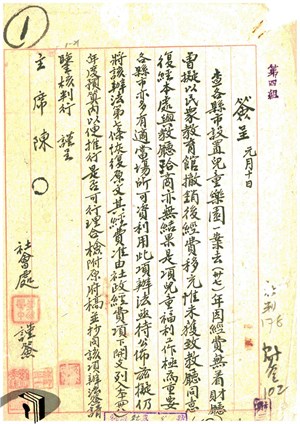 ①
第四組
簽呈 元月十日
查各縣市設置兒童樂園一業去(卅七)年因經費無着財廳
曾擬以民眾教育館撤銷後經費移充惟未獲致教廳同意
復經本處與教廳洽商亦無結果是項兒童福利工作極為重要
各縣市亦多有適當場所可資利用此項辦法亟待公佈茲擬仍
將該辦法第七條恢復原文其經費准由社政經費項下開支列
年度預算內以便推行是否可行理合檢附原府稿並抄同該項辦法簽請
鑒核判行 謹呈
主席陳
社會處 謹簽